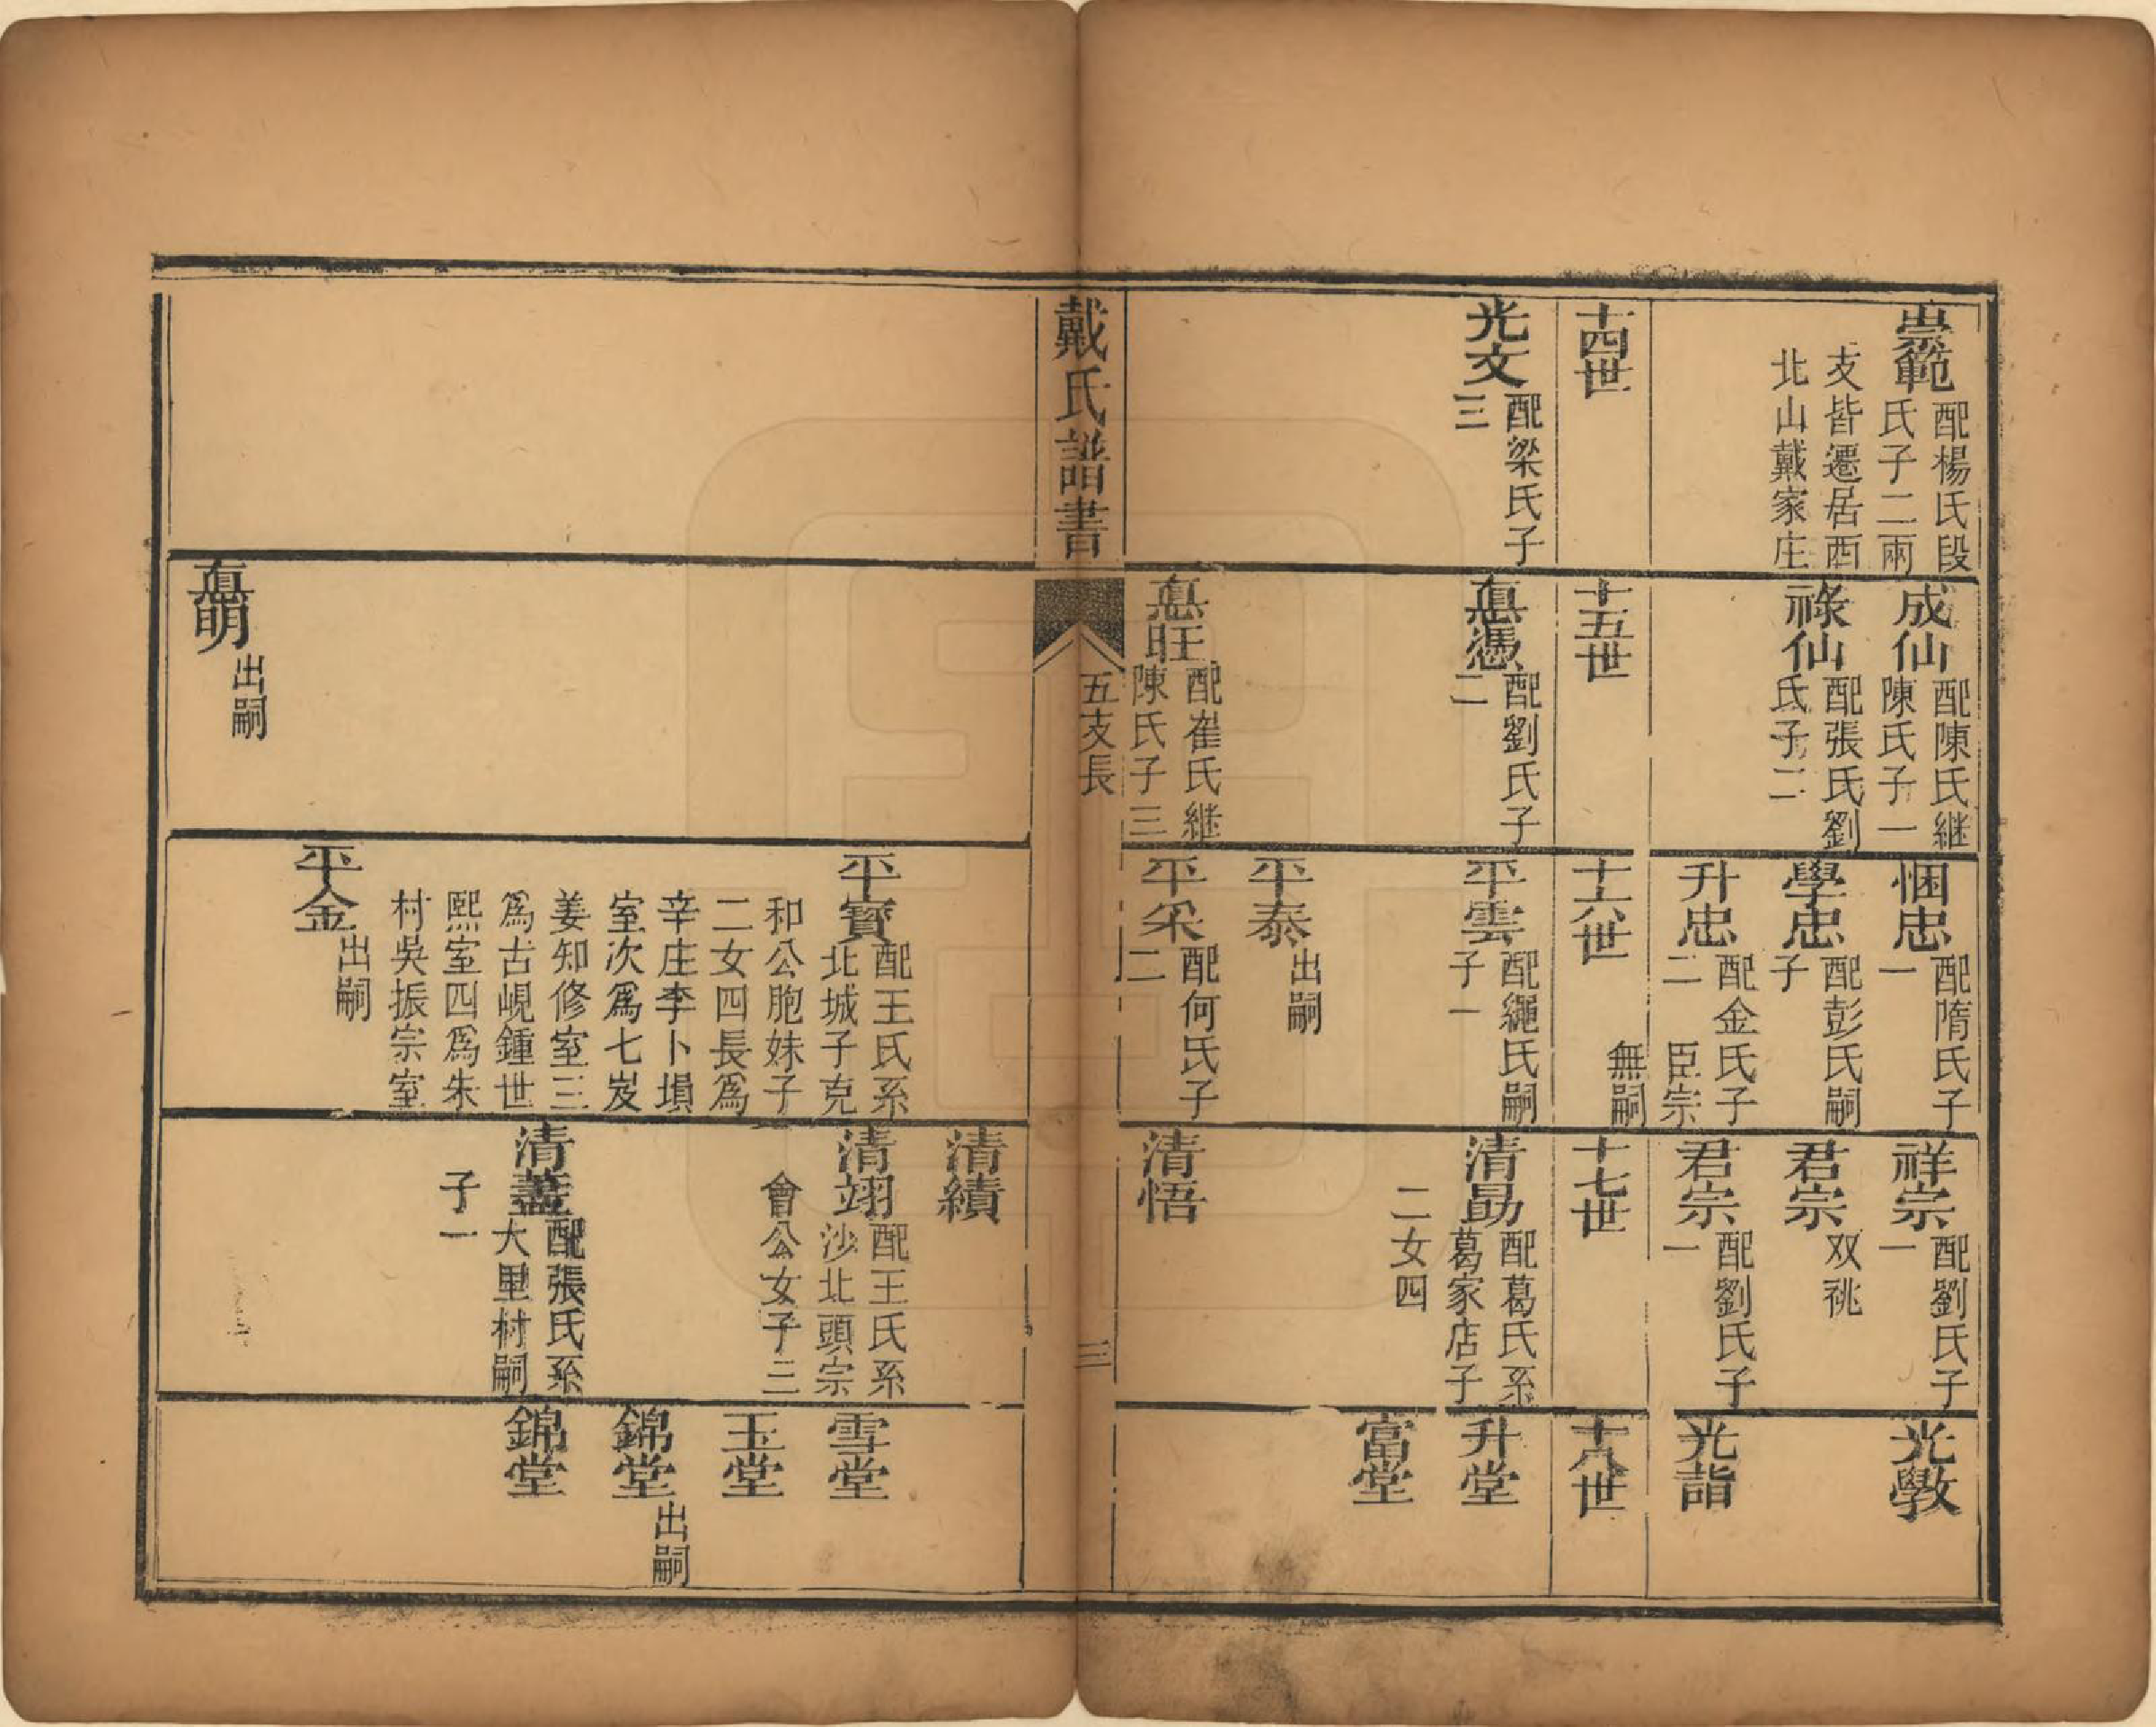 崇範
配楊氏段
氏子二兩
支皆遷居西
北山戴家庄
成仙
配陳氏継
陳氏子一
祿仙
配張氏劉
氏子二
悃忠
配隋氏子
一
學忠
配彭氏嗣
子
升忠
配金氏子
二
臣宗
無嗣
祥宗
配劉氏子
一
君宗
双祧
君宗
配劉氏子
一
光斆
光詣
十四世
十五世
十六世
十七世
十八世
光文
配梁氏子
三
悳憑
配劉氏子
二
悳旺
配崔氏継
陳氏子三
平雲
配繩氏嗣
子一
平泰
出嗣
平采
配何氏子
二
清勗
配葛氏系
葛家店子
二女四
清悟
升堂
富堂
戴氏譜書
五支長
三
悳明
出嗣
平寳
配王氏系
北城子克
和公胞妹子
二女四長爲
辛庄李卜塤
室次爲七岌
姜知修室三
爲古峴鍾世
熙室四爲朱
村吳振宗室
平金
出嗣
清績
清翊
配王氏系
沙北頭宗
會公女子三
清藎
配張氏系
大里村嗣
子一
雪堂
玉堂
錦堂
出嗣
錦堂